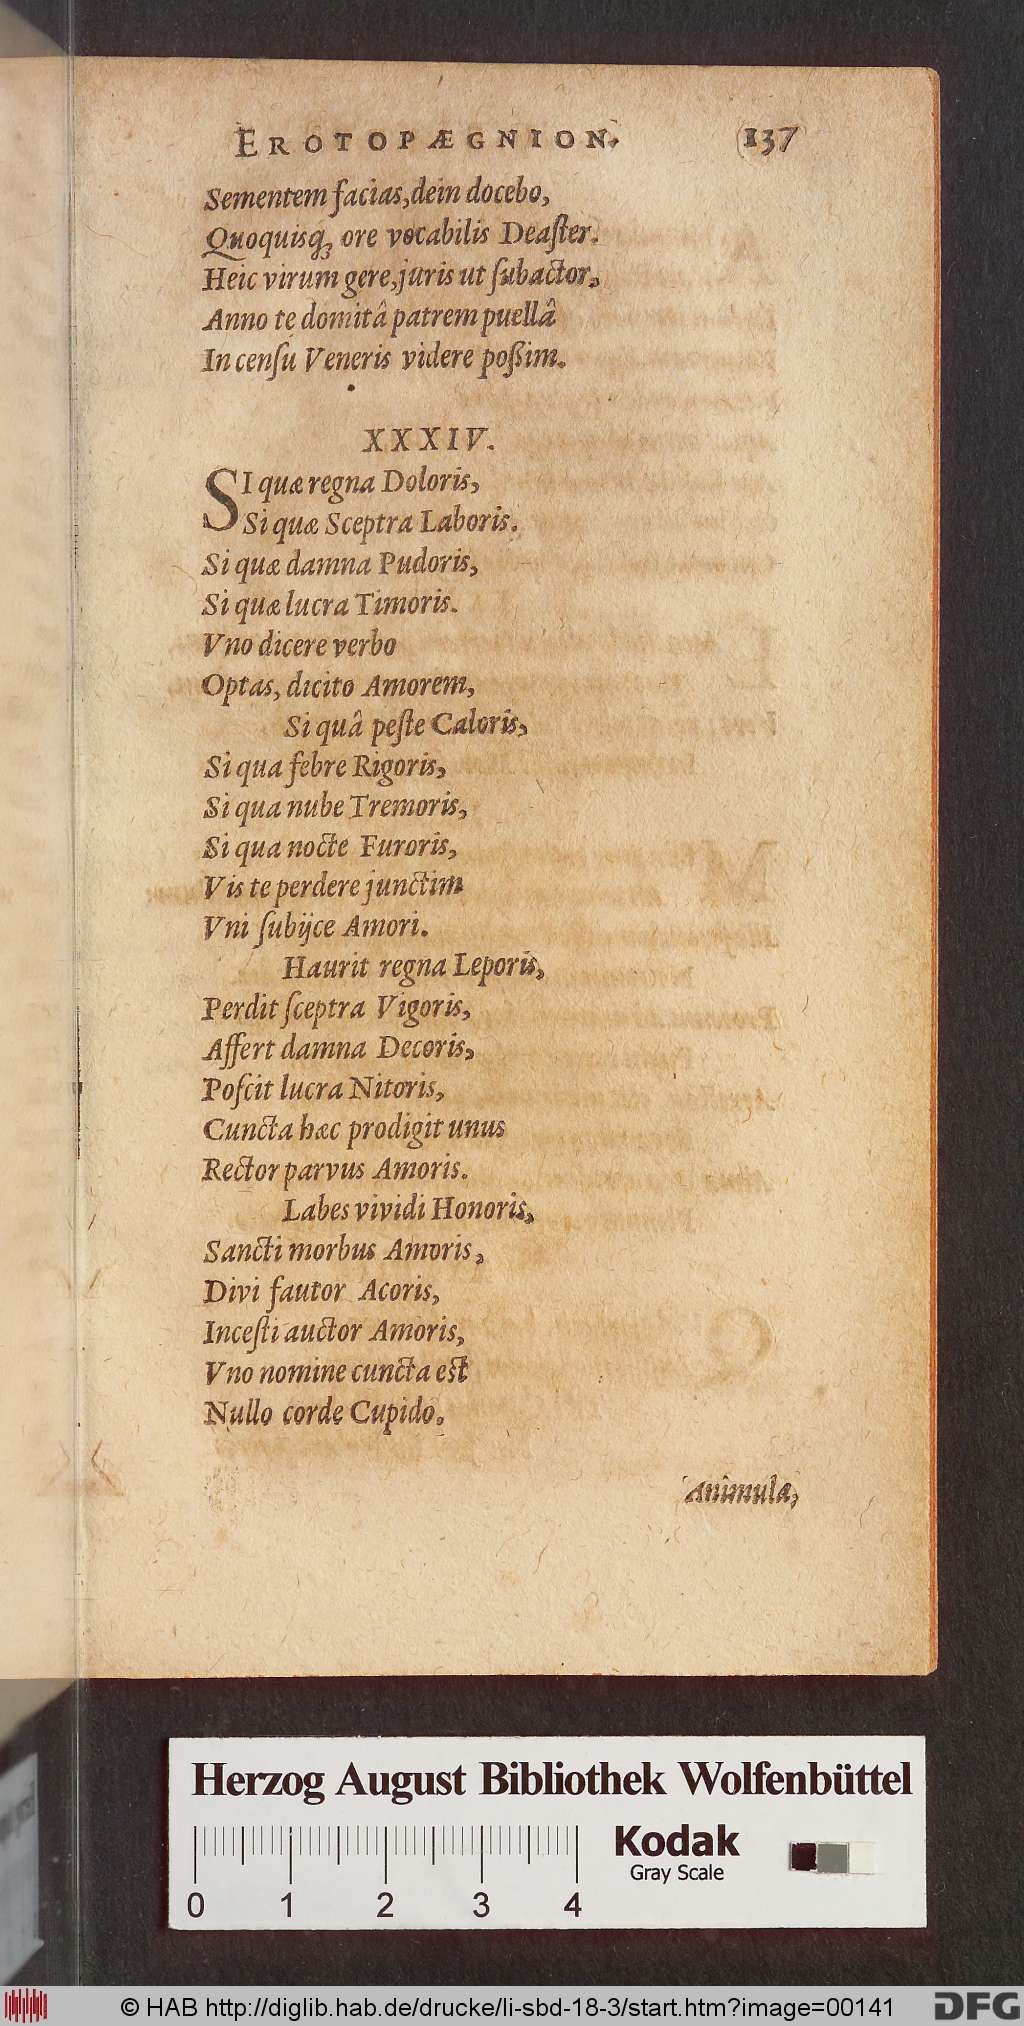 EROTOPÆGNION. 137
Sementem facias, dein docebo,
Quoquisq́ꝫ ore vocabilis Deaſter.
Heic virum gere, juris ut ſubactor,
Anno te domitâ patrem puellâ
In cenſu Veneris videre poßim.
XXXIV.
SI quæ regna Doloris,
Si quæ Sceptra Laboris.
Si quæ damna Pudoris,
Si quæ lucra Timoris.
Vno dicere verbo
Optas, dicito Amorem,
Si quâ peſte Caloris,
Si qua febre Rigoris,
Si qua nube Tremoris,
Si qua nocte Furoris,
Vis te perdere junctim
Vni ſubijce Amori.
Haurit regna Leporis,
Perdit ſceptra Vigoris,
Affert damna Decoris,
Poſcit lucra Nitoris,
Cuncta hæc prodigit unus
Rector parvus Amoris.
Labes vividi Honoris,
Sancti morbus Amoris,
Divi fautor Acoris,
Inceſti auctor Amoris,
Vno nomine cuncta eſt
Nullo corde Cupido.
Animula,
Herzog August Bibliothek Wolfenbüttel
Kodak
Gray Scale
0 1 2 3 4
© HAB http://diglib.hab.de/drucke/li-sbd-18-3/start.htm?image=00141
DFG